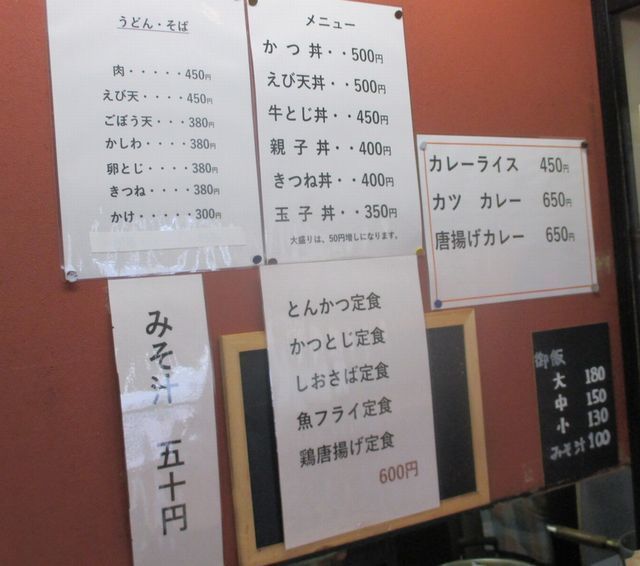 うどん・そば
肉・・・・・450円
えび天・・・・450円
ごぼう天・・・380円
かしわ・・・・380円
卵とじ・・・・380円
きつね・・・・380円
かけ・・・・・300円
メニュー
かつ丼・・500円
えび天丼・・500円
牛とじ丼・・450円
親子丼・・400円
きつね丼・・400円
玉子丼・・350円
大盛りは、50円増しになります。
カレーライス 450円
カツ カレー 650円
唐揚げカレー 650円
みそ汁 五十円
とんかつ定食
かつとじ定食
しおさば定食
魚フライ定食
鶏唐揚げ定食
600円
御飯
大 180
中 150
小 130
みそ汁 100